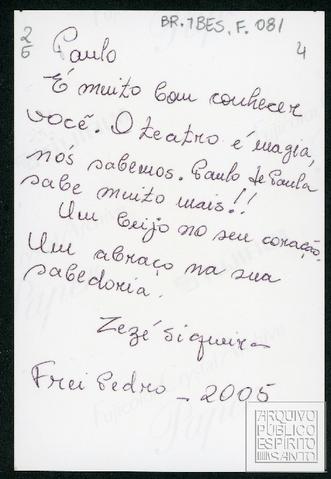 BR.TBES.F.081
2/6
4
Paulo
É muito bom conhecer
você. O teatro é magia,
nós sabemos. Paulo de Paula
sabe muito mais!!
Um beijo no seu coração.
Um abraço na sua
sabedoria.
Zezé Siqueira
Frei Pedro - 2005
ARQUIVO
PÚBLICO
ESPÍRITO
SANTO